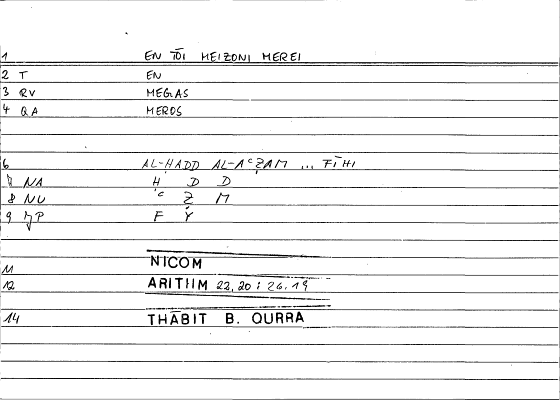 1 EN TŌI MEIZONI MEREI
2 T EN
3 RV MEGAS
4 QA MEROS
6 AL-ḤADD AL-AᶜẒAM ... FĪHI
7 NA Ḥ D D
8 NU ᶜ Ẓ M
9 F Y
11 NICOM
12 ARITHM 22,20 : 26.19
14 THĀBIT B. QURRA